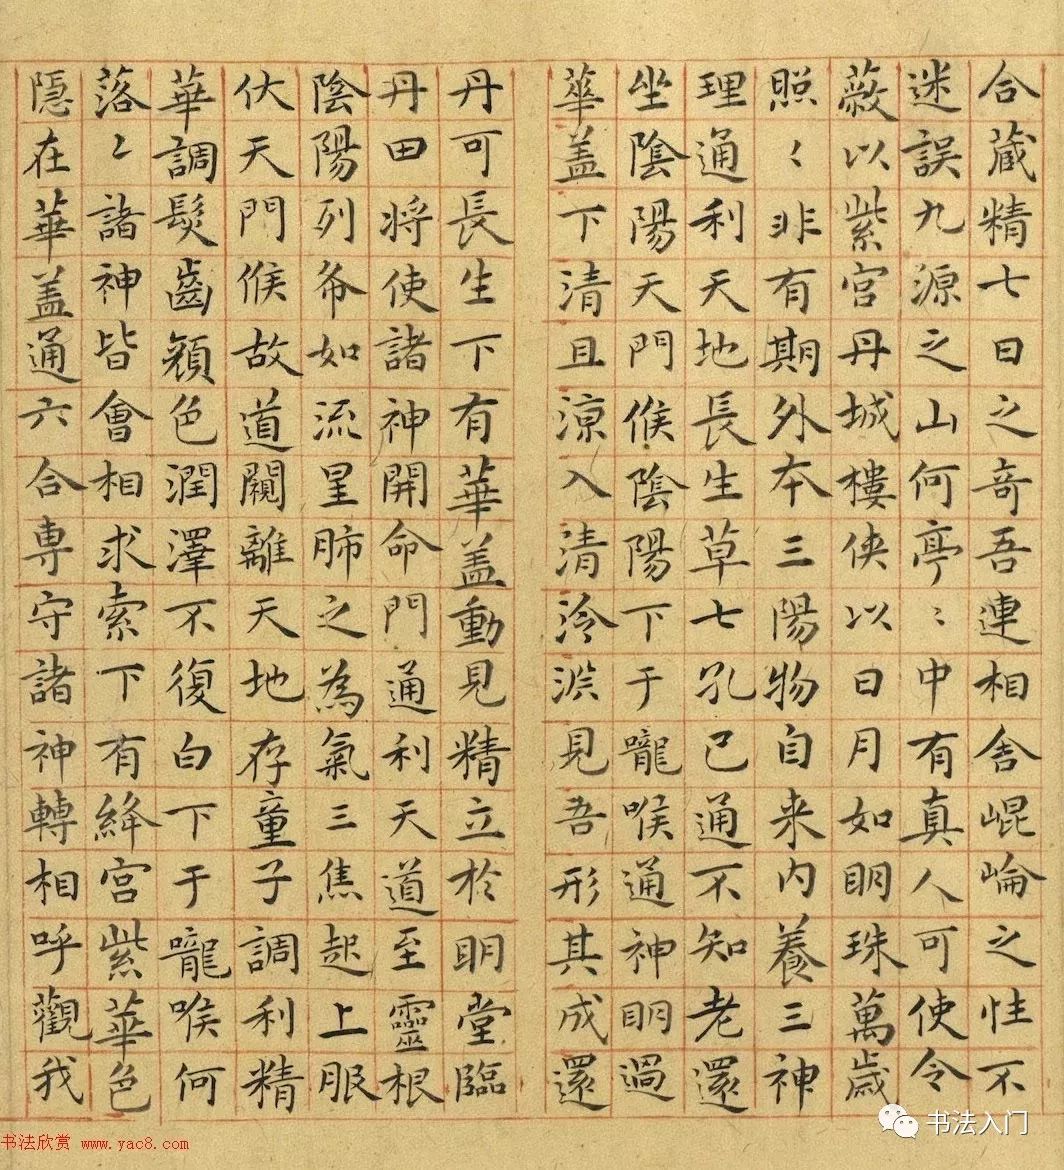 合藏精七日之奇吾連相舍崐崘之性不
迷誤九源之山何亭〻中有真人可使令
蔽以紫宮丹城樓俠以日月如明珠萬歲
照〻非有期外本三陽物自来内養三神
理通利天地長生草七孔已通不知老還
坐陰陽天門候陰陽下于嚨喉通神明過
華盖下清且涼入清泠淵見吾形其成還
丹可長生下有華盖動見精立於明堂臨
丹田将使諸神開命門通利天道至靈根
陰陽列布如流星肺之為氣三焦起上服
伏天門候故道闚離天地存童子調利精
華調髮齒顏色潤澤不復白下于嚨喉何
落〻諸神皆會相求索下有絳宮紫華色
隱在華盖通六合専守諸神轉相呼觀我
书法欣赏 www.yac8.com
书法入门